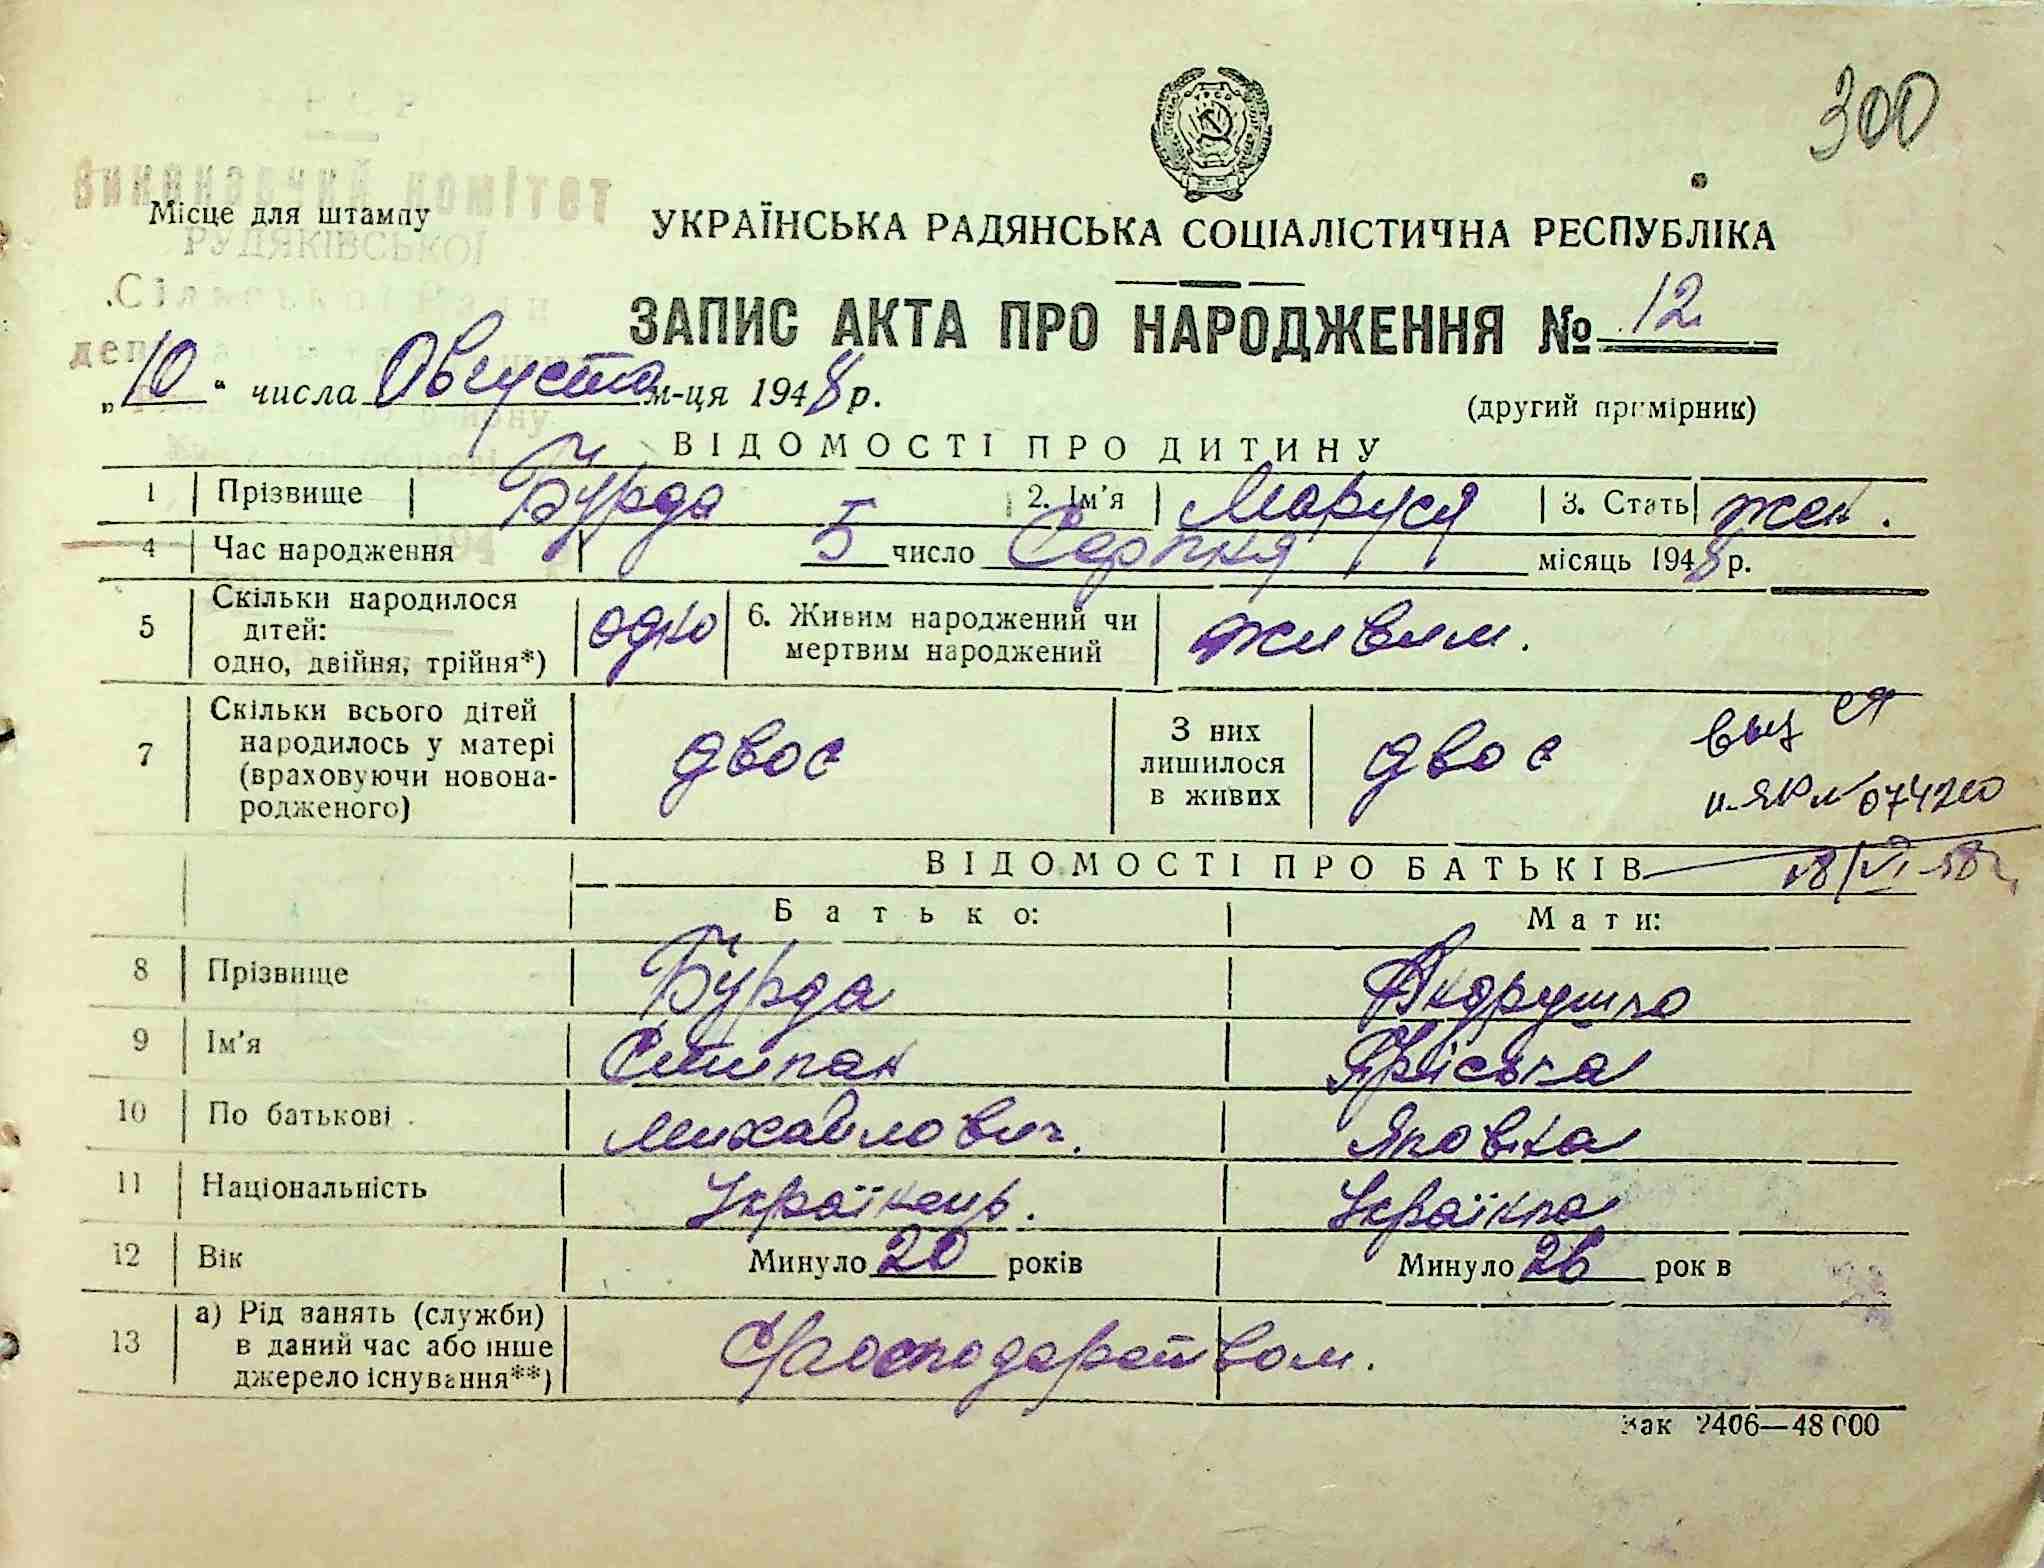 300
Місце для штампу
РУДЯКІВСЬКОЇ
УКРАЇНСЬКА РАДЯНСЬКА СОЦІАЛІСТИЧНА РЕСПУБЛІКА
ЗАПИС АКТА ПРО НАРОДЖЕННЯ № 12
„10“ числа Августа м-ця 1948 р.
(другий примірник)
ВІДОМОСТІ ПРО ДИТИНУ
1 Прізвище Бурда 2. Ім'я Маруся 3. Стать жен.
4 Час народження 5 число Серпня місяць 1948 р.
5 Скільки народилося дітей: одно, двійня, трійня*) одно 6. Живим народжений чи мертвим народжений живим.
7 Скільки всього дітей народилось у матері (враховуючи новонародженого) двоє З них лишилося в живих двоє
ВІДОМОСТІ ПРО БАТЬКІВ
Батько: Мати:
8 Прізвище Бурда Андрушко
9 Ім'я Стипан Пріська
10 По батькові Михайлович. Яковна
11 Національність Українець. Українка
12 Вік Минуло 20 років Минуло 26 рок в
13 а) Рід занять (служби) в даний час або інше джерело існування**)
Зак 2406—48 000